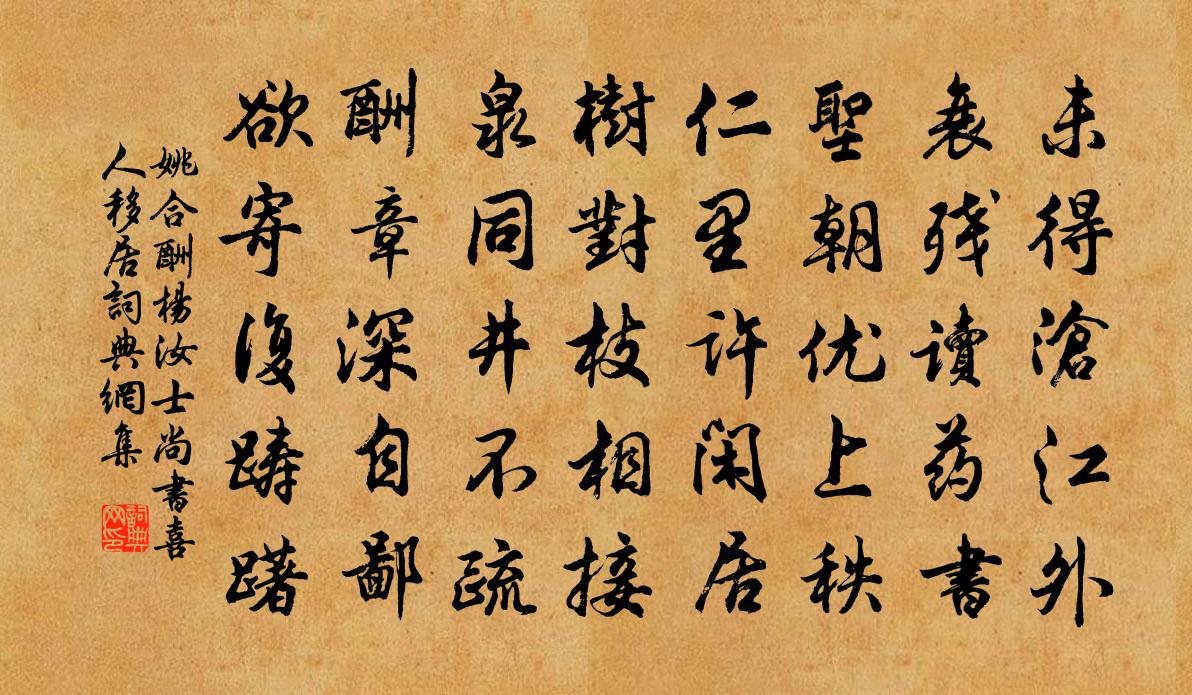 未得滄江外
衰残讀药書
聖朝优上秩
仁里許閑居
樹對枝相接
泉同井不疏
酬章深自鄙
欲寄復踌躇
姚合酬楊汝士尚書喜
人移居詞典網集
詞典
网印